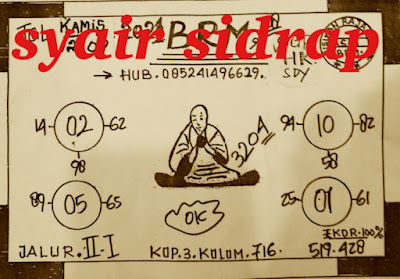 syair sidrap
Tgl KAMIS
2024
BRM
HK
SDY
→ HUB. 085241496629.
14 - 02 - 62
98
94 - 10 - 82
58
3204
89 - 05 - 65
25 - 01 - 61
OK
EKOR. 100%
JALUR. II-I
KOP. 3. KOLOM. 716.
519.428